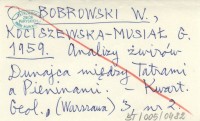 BOBROWSKI W.,
KOCISZEWSKA-MUSIAŁ G.
1959. Analizy żwirów
Dunajca między Tatrami
a Pieninami. – Kwart.
Geol., (Warszawa) 3, nr 2.
BT/005/0482